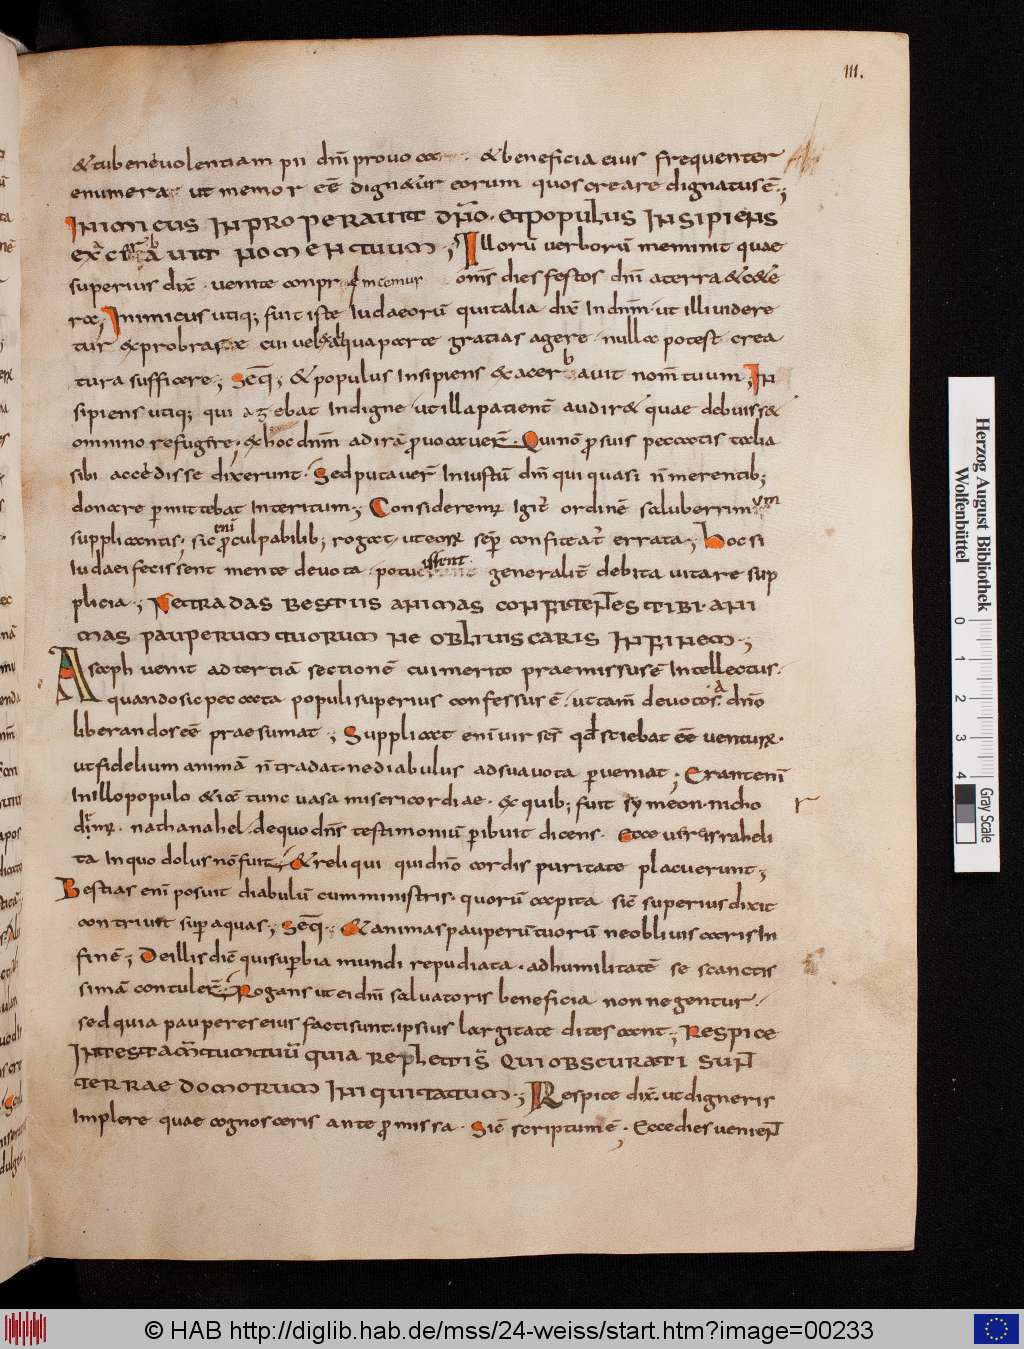 III.
&tubenevolentiam pii dnī provocat. &beneficia eius frequenter
enumerat ut memor eē dign&ur eorum quos creare dignatus ē.;
INIMICUS INPROPERAVIT DNŌ. ETPOPULUS INSIPIENS
NOMEN TUUM.; Illorū verborū meminit quae
superius dix̄. venite conprimamus om̄s dies festos dnī aterra &cete
rā; Inimicus utiq; fuit iste Iudaeorū qui talia dix̄ In dnm̄. ut illi videre
tur exprobrasse cui vel aliqua parte gratias agere. nulla potest crea
tura sufficere; Seq̄; &populus Insipiens exacerbavit nom̄ tuum; In
sipiens utiq; qui agebat Indigne. ut illa patient̄ audir& quae debuiss&
omnino refugire. ex hoc dnm̄ ad irā provocaver̄. Qui nō pro suis peccatis talia
sibi accedisse dixerunt. Sed putaver̄ Iniustū dnī qui quasi n̄ merentib;
donare permittebat Interitum; Consideremur Igit̄ ordinē saluberrimum
supplicantis. sic pro culpabilib; enī rogat. ut eorum semper confiteat̄ errata; Hoc si
Iudaei fecissent mente devota. potuissent generalit̄ debita vitare sup
plicia.; NETRADAS BESTIIS ANIMAS CONFITENTES TIBI. ANI
MAS PAUPERUM TUORUM NE OBLIVISCARIS IN FINEM.;
Asaph venit ad tertiā sectionē cui merito praemissus ē Intellectus.
quando sic peccata populi superius confessus ē. ut tam̄ devotos a dnō
liberandos eē praesumat.; Supplicat enī vir scs̄ qd̄ sciebat eē venturum.
ut fidelium animā n̄ tradat. ne diabulus ad sua vota perveniat; Erant enī
In illo populo &iā tunc vasa misericordiae. ex quib; fuit symeon. nicho
dimus. nathanahel. de quo dns̄ testimoniū peribuit dicens. Ecce vir israheli
ta In quo dolus nō fuit; &reliqui qui dnō cordis puritate placuerunt;
Bestias enī posuit diabulū cum ministris. quorū capita sic̄ superius dixit
contrivit super aquas.; Seq̄.; &animas pauperū tuorū ne obliviscaris In
finē; De illis dic̄ qui superbia mundi repudiata. ad humilitatē se scanctis
simā contuler̄. Rogans ut ei dnī salvatoris beneficia non negentur.
sed quia pauperes eius facti sunt. ipsius largitate ditescant.; RESPICE
IN TESTAMTUM TUŪ QUIA REPLETI S̄ QUI OBSCURATI SUNT
TERRAE DOMORUM INIQUITATUM.; Respice dix̄. ut digneris
Implere quae cognosceris ante promissa. Sic̄ scriptum ē. Ecce dies venient
Herzog August Bibliothek
Wolfenbüttel
0 1 2 3 4
Gray Scale
© HAB http://diglib.hab.de/mss/24-weiss/start.htm?image=00233